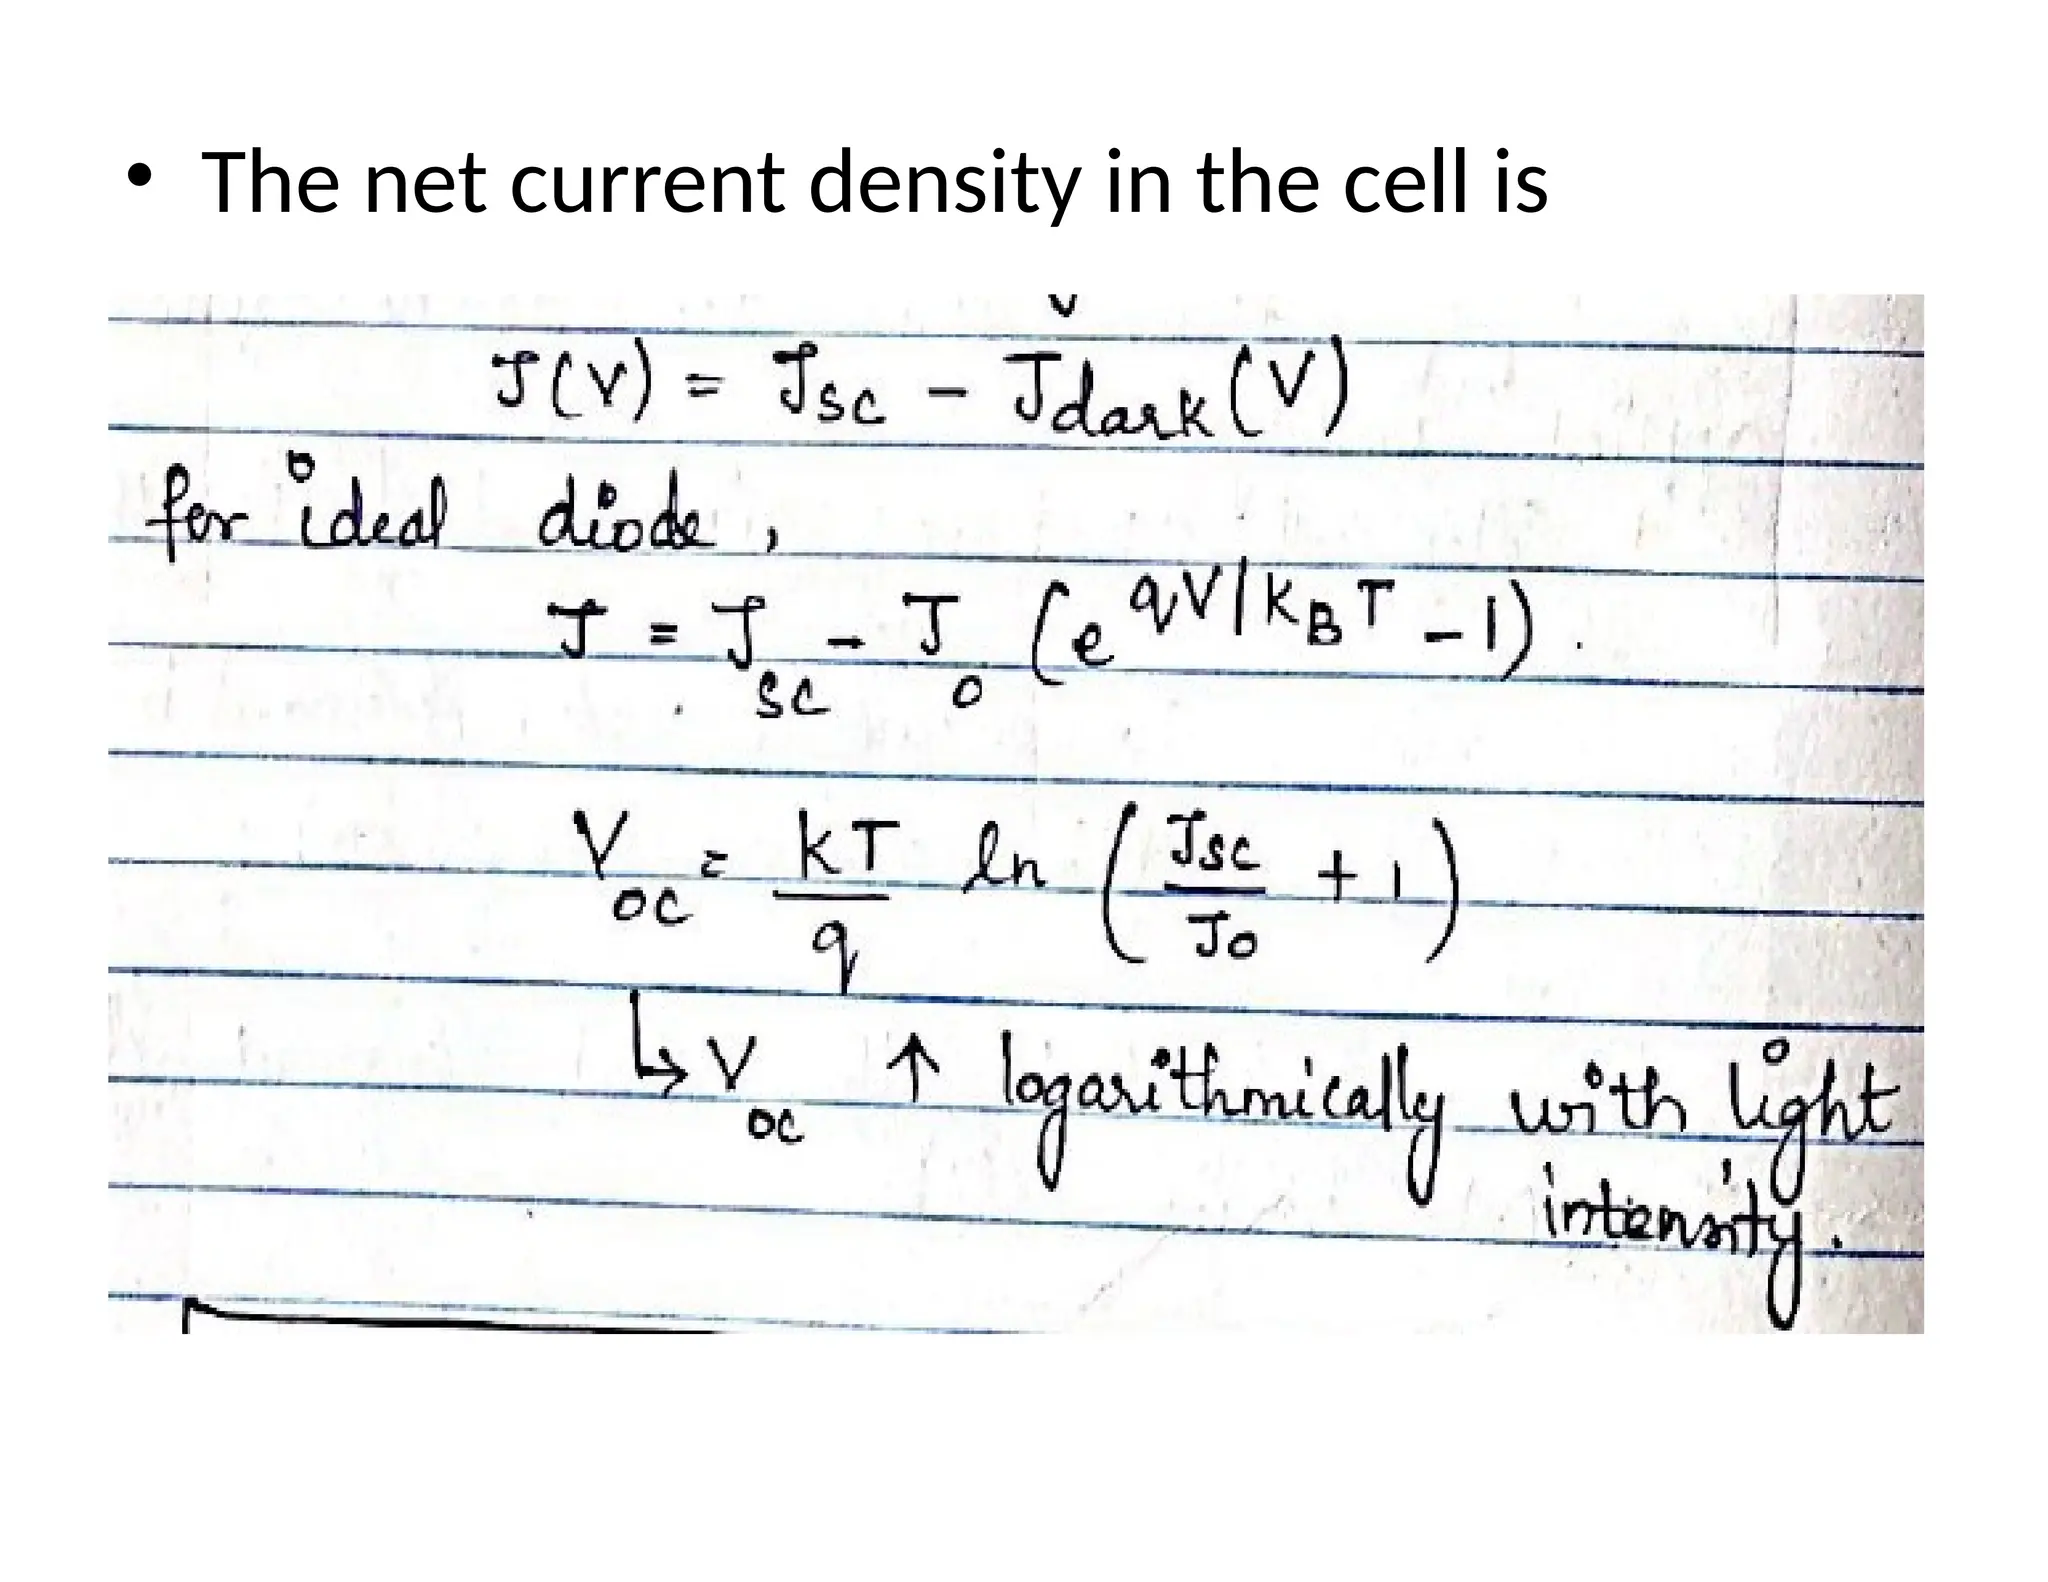 • The net current density in the cell is
J(V) = Jsc - Jdark(V)
for ideal diode,
J = Jsc - J0 (e^qV/KBT - 1).
Voc = kT/q ln (Jsc/J0 + 1)
↳ Voc ↑ logarithmically with light
intensity.